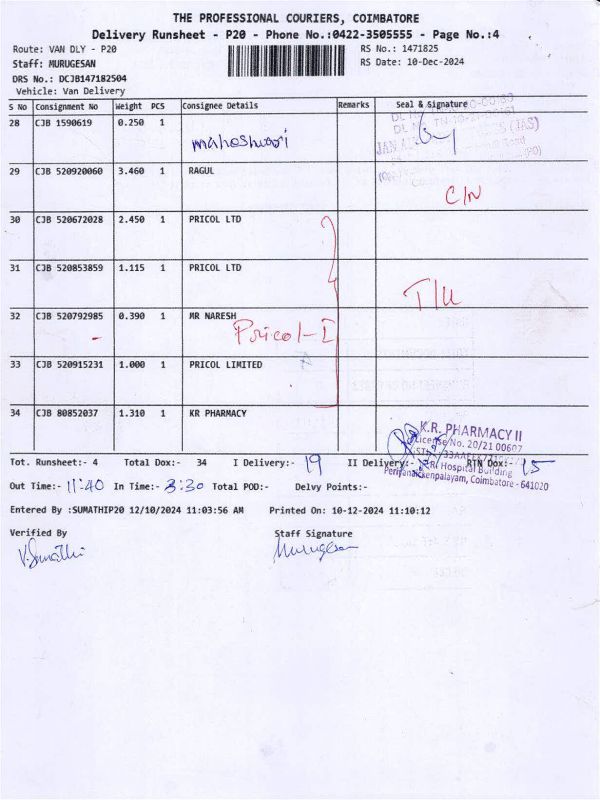 THE PROFESSIONAL COURIERS, COIMBATORE
Delivery Runsheet - P20 - Phone No.:0422-3505555 - Page No.:4
Route: VAN DLY - P20
RS No.: 1471825
Staff: MURUGESAN
RS Date: 10-Dec-2024
DRS No.: DCJB147182504
Vehicle: Van Delivery
S No Consignment No Weight PCS Consignee Details Remarks Seal & Signature
28 CJB 1590619 0.250 1
maheshwari
29 CJB 520920060 3.460 1 RAGUL
C/N
30 CJB 520672028 2.450 1 PRICOL LTD
31 CJB 520853859 1.115 1 PRICOL LTD
32 CJB 520792985 0.390 1 MR NARESH
Pricol-I
33 CJB 520915231 1.000 1 PRICOL LIMITED
34 CJB 80852037 1.310 1 KR PHARMACY
K.R. PHARMACY II
License No. 20/21 00607
KR Hospital Building
Coimbatore - 641020
Tot. Runsheet:- 4 Total Dox:- 34 I Delivery:- 19 II Delivery:- RTN Dox:- 15
Out Time:- 11:40 In Time:- 3:30 Total POD:- Delvy Points:-
Entered By :SUMATHIP20 12/10/2024 11:03:56 AM Printed On: 10-12-2024 11:10:12
Verified By Staff Signature
V.Sumathi Murugesan